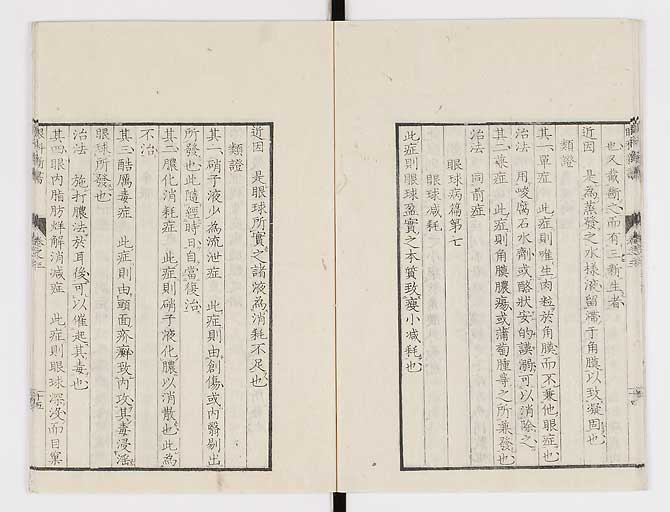 也又截斷之而有三新生者
近因 是為蒸發之水樣液留滯于角膜以致凝固也
類證
其一單症 此症則唯生肉粒於角膜而不兼他眼症也
治法 用唆腐石水劑或酪狀安的謨溺可以消除之
其二兼症 此症則角膜膿瘍或蒲萄腫等之所兼發也
治法 同前症
眼球病篇第七
眼球减耗
此症則眼球盈實之本質致變小减耗也
近因 是眼球所實之諸液為消耗不足也
類證
其一硝子液少為流泄症 此症則由創傷或內翳剔出
所發也此隨經時日自當復治
其二膿化消耗症 此症則硝子液化膿以消散也此為
不治
其三酷厲毒症 此症則由頭面疥癬致內攻其毒浸淫
眼球所發也
治法 施打膿法於耳後可以催起其毒也
其四眼內脂肪烊解消减症 此症則眼球深沒而目窠